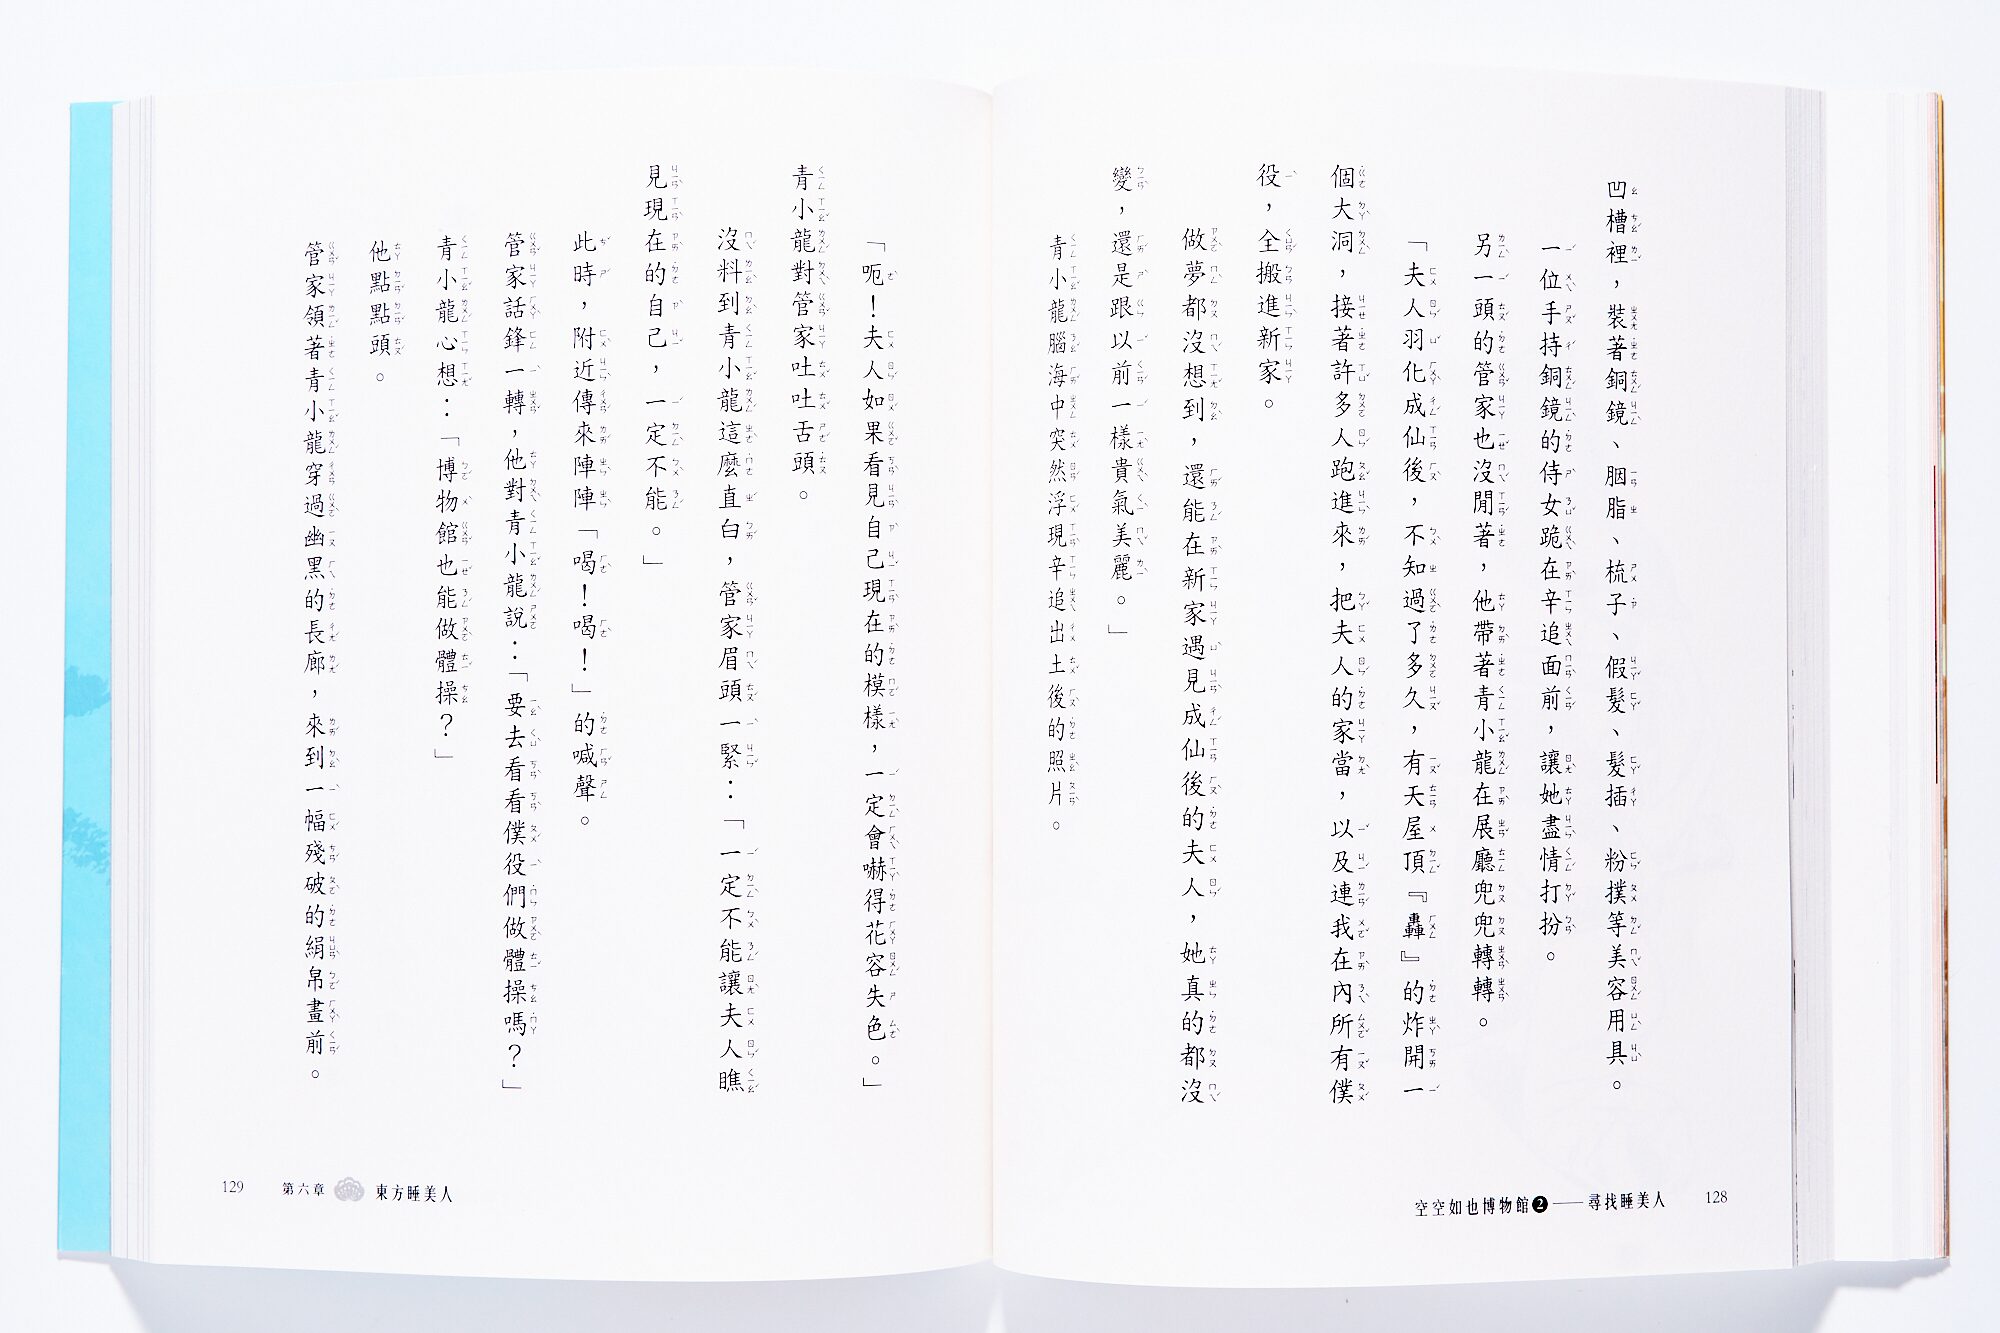 凹槽裡，裝著銅鏡、胭脂、梳子、假髮、髮插、粉撲等美容用具。
一位手持銅鏡的侍女跪在辛追面前，讓她盡情打扮。
另一頭的管家也沒閒著，他帶著青小龍在展廳兜兜轉轉。
「夫人羽化成仙後，不知過了多久，有天屋頂『轟』的炸開一
個大洞，接著許多人跑進來，把夫人的家當，以及連我在內所有僕
役，全搬進新家。
做夢都沒想到，還能在新家遇見成仙後的夫人，她真的都沒
變，還是跟以前一樣貴氣美麗。」
青小龍腦海中突然浮現辛追出土後的照片。
空空如也博物館❷——尋找睡美人 128
「呃！夫人如果看見自己現在的模樣，一定會嚇得花容失色。」
青小龍對管家吐吐舌頭。
沒料到青小龍這麼直白，管家眉頭一緊：「一定不能讓夫人瞧
見現在的自己，一定不能。」
此時，附近傳來陣陣「喝！喝！」的喊聲。
管家話鋒一轉，他對青小龍說：「要去看看僕役們做體操嗎？」
青小龍心想：「博物館也能做體操？」
他點點頭。
管家領著青小龍穿過幽黑的長廊，來到一幅殘破的絹帛畫前。
129 第六章 東方睡美人